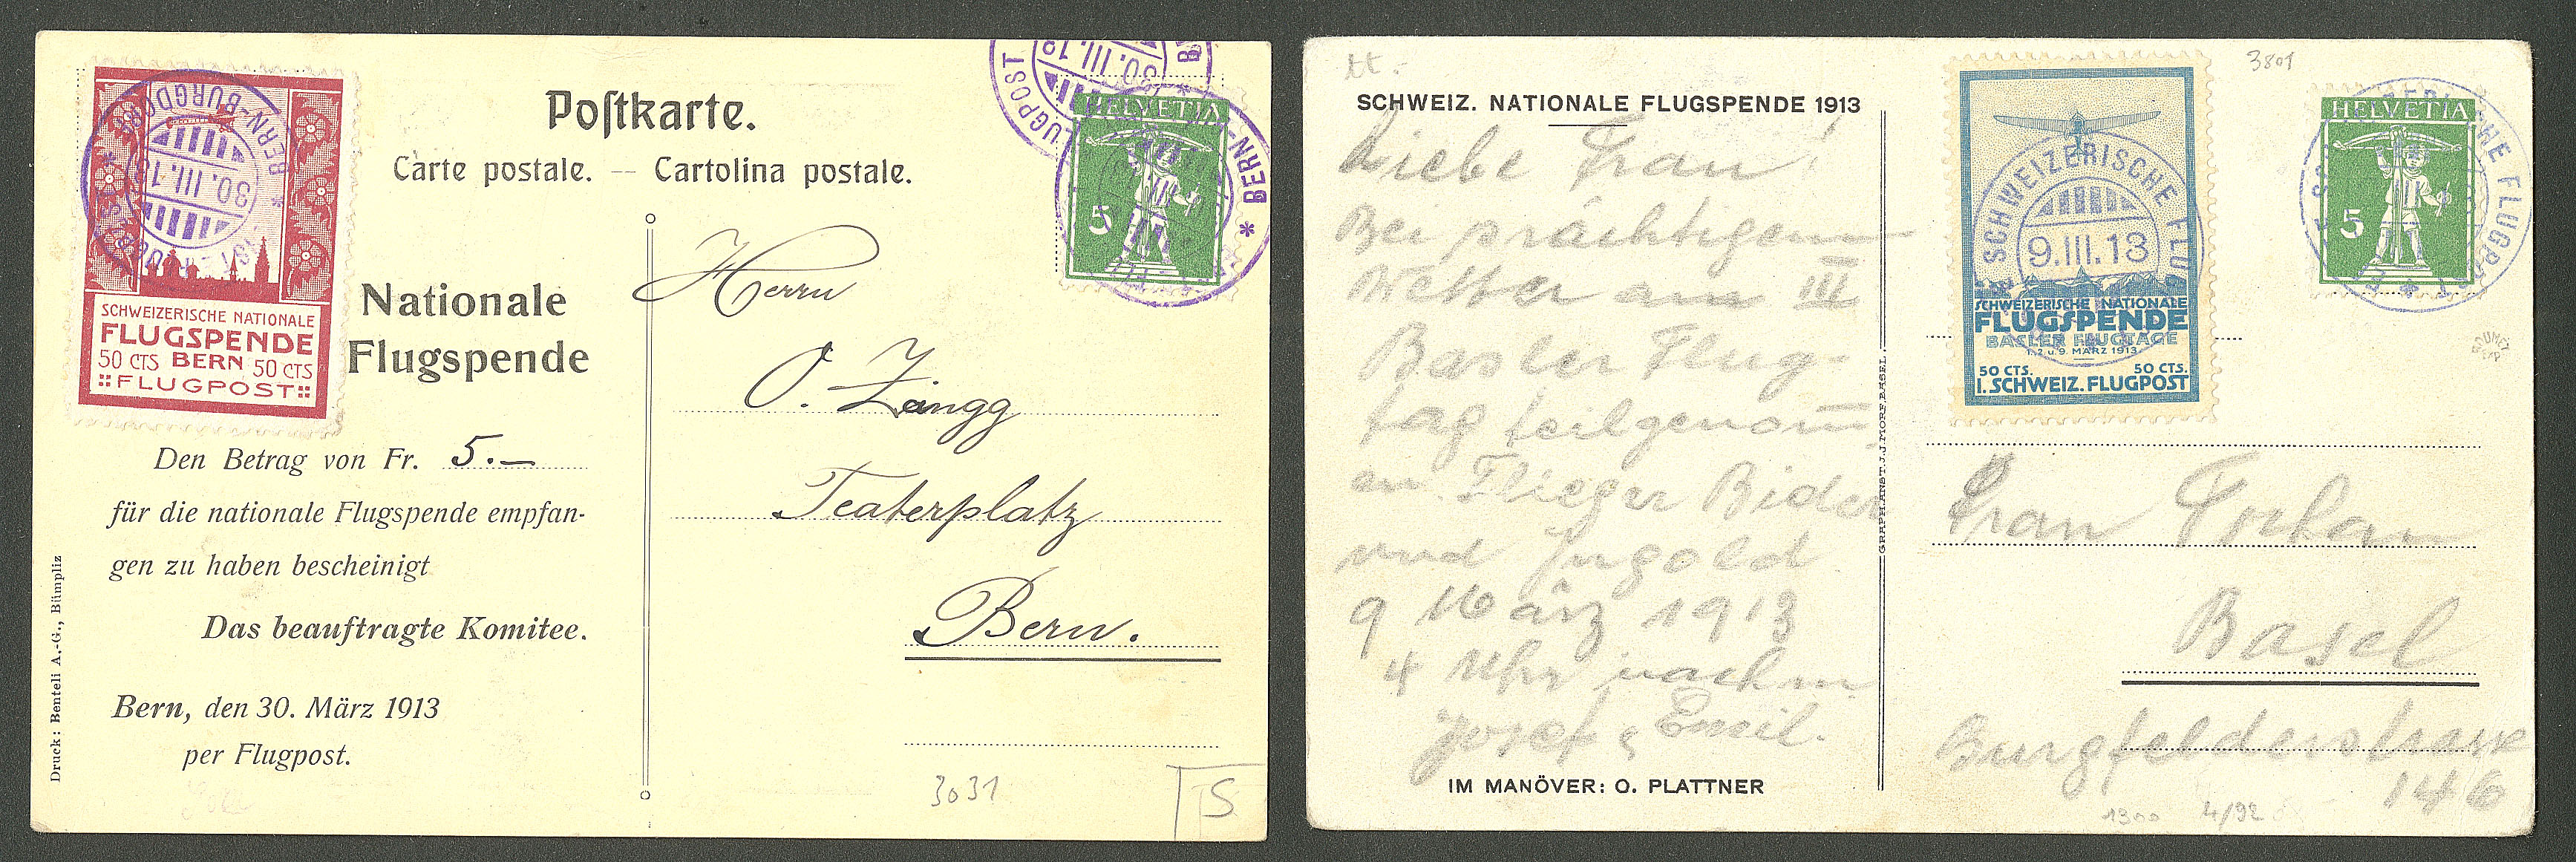 Postkarte.
Carte postale. — Cartolina postale.
Nationale
Flugspende
SCHWEIZERISCHE NATIONALE
FLUGSPENDE
50 CTS BERN 50 CTS
FLUGPOST
BERN-BURGDORF
30.III.13
Den Betrag von Fr. 5.—
für die nationale Flugspende empfan-
gen zu haben bescheinigt
Das beauftragte Komitee.
Bern, den 30. März 1913
per Flugpost.
Druck: Benteli A.-G., Bümpliz
HELVETIA
5
30.III.13
FLUGPOST
BERN-
Herrn
O. Zängg
Teaterplatz
Bern.
3031
S
SCHWEIZ. NATIONALE FLUGSPENDE 1913
Liebe Frau!
Bei prächtigem
Wetter am III
Basler Flug-
tag teilgenom̅
an. Flieger Bider
und Ingold
9 März 1913
4 Uhr nachm.
Josef & Emil.
IM MANÖVER: O. PLATTNER
GRAPH. ANST. J. J. MORF, BASEL.
SCHWEIZERISCHE FLUGPOST
9.III.13
SCHWEIZERISCHE NATIONALE
FLUGSPENDE
BASLER FLUGTAGE
1. 2. u. 9. MÄRZ 1913
50 CTS. 50 CTS.
I. SCHWEIZ. FLUGPOST
3801
HELVETIA
5
SCHWEIZERISCHE FLUGPOST
Frau
Basel
Burgfelderstrasse
146
1300 4/92